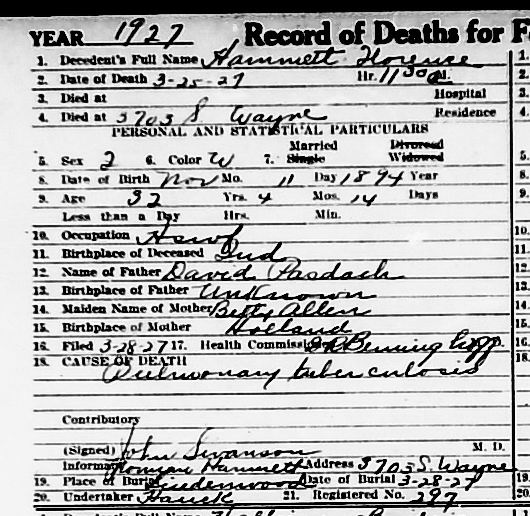 YEAR 1927 Record of Deaths for F
1. Decedent's Full Name Hammett Florence 1.
2. Date of Death 3-25-27 Hr. 11 30 a M. 2.
3. Died at Hospital 3.
4. Died at 3703 S. Wayne Residence 4.
PERSONAL AND STATISTICAL PARTICULARS
Married Divorced
5. Sex 2 6. Color W 7. Single Widowed 5.
8. Date of Birth Nov Mo. 11 Day 1894 Year 8.
9. Age 32 Yrs. 4 Mos. 14 Days 9.
Less than a Day Hrs. Min.
10. Occupation Hswf 10.
11. Birthplace of Deceased Ind 11.
12. Name of Father David Pasdach 12.
13. Birthplace of Father Unknown 13.
14. Maiden Name of Mother Betty Allen 14.
15. Birthplace of Mother Holland 15.
16. Filed 3-28-27 17. Health Commiss 16.
18. CAUSE OF DEATH 18.
Pulmonary tuberculosis
Contributory
(Signed) John Swanson M. D.
Informa Norman Hammett Address 3703 S. Wayne
19. Place of Burial Lindenwood Date of Burial 3-28-27 19.
20. Undertaker Hauck 21. Registered No. 297 20.